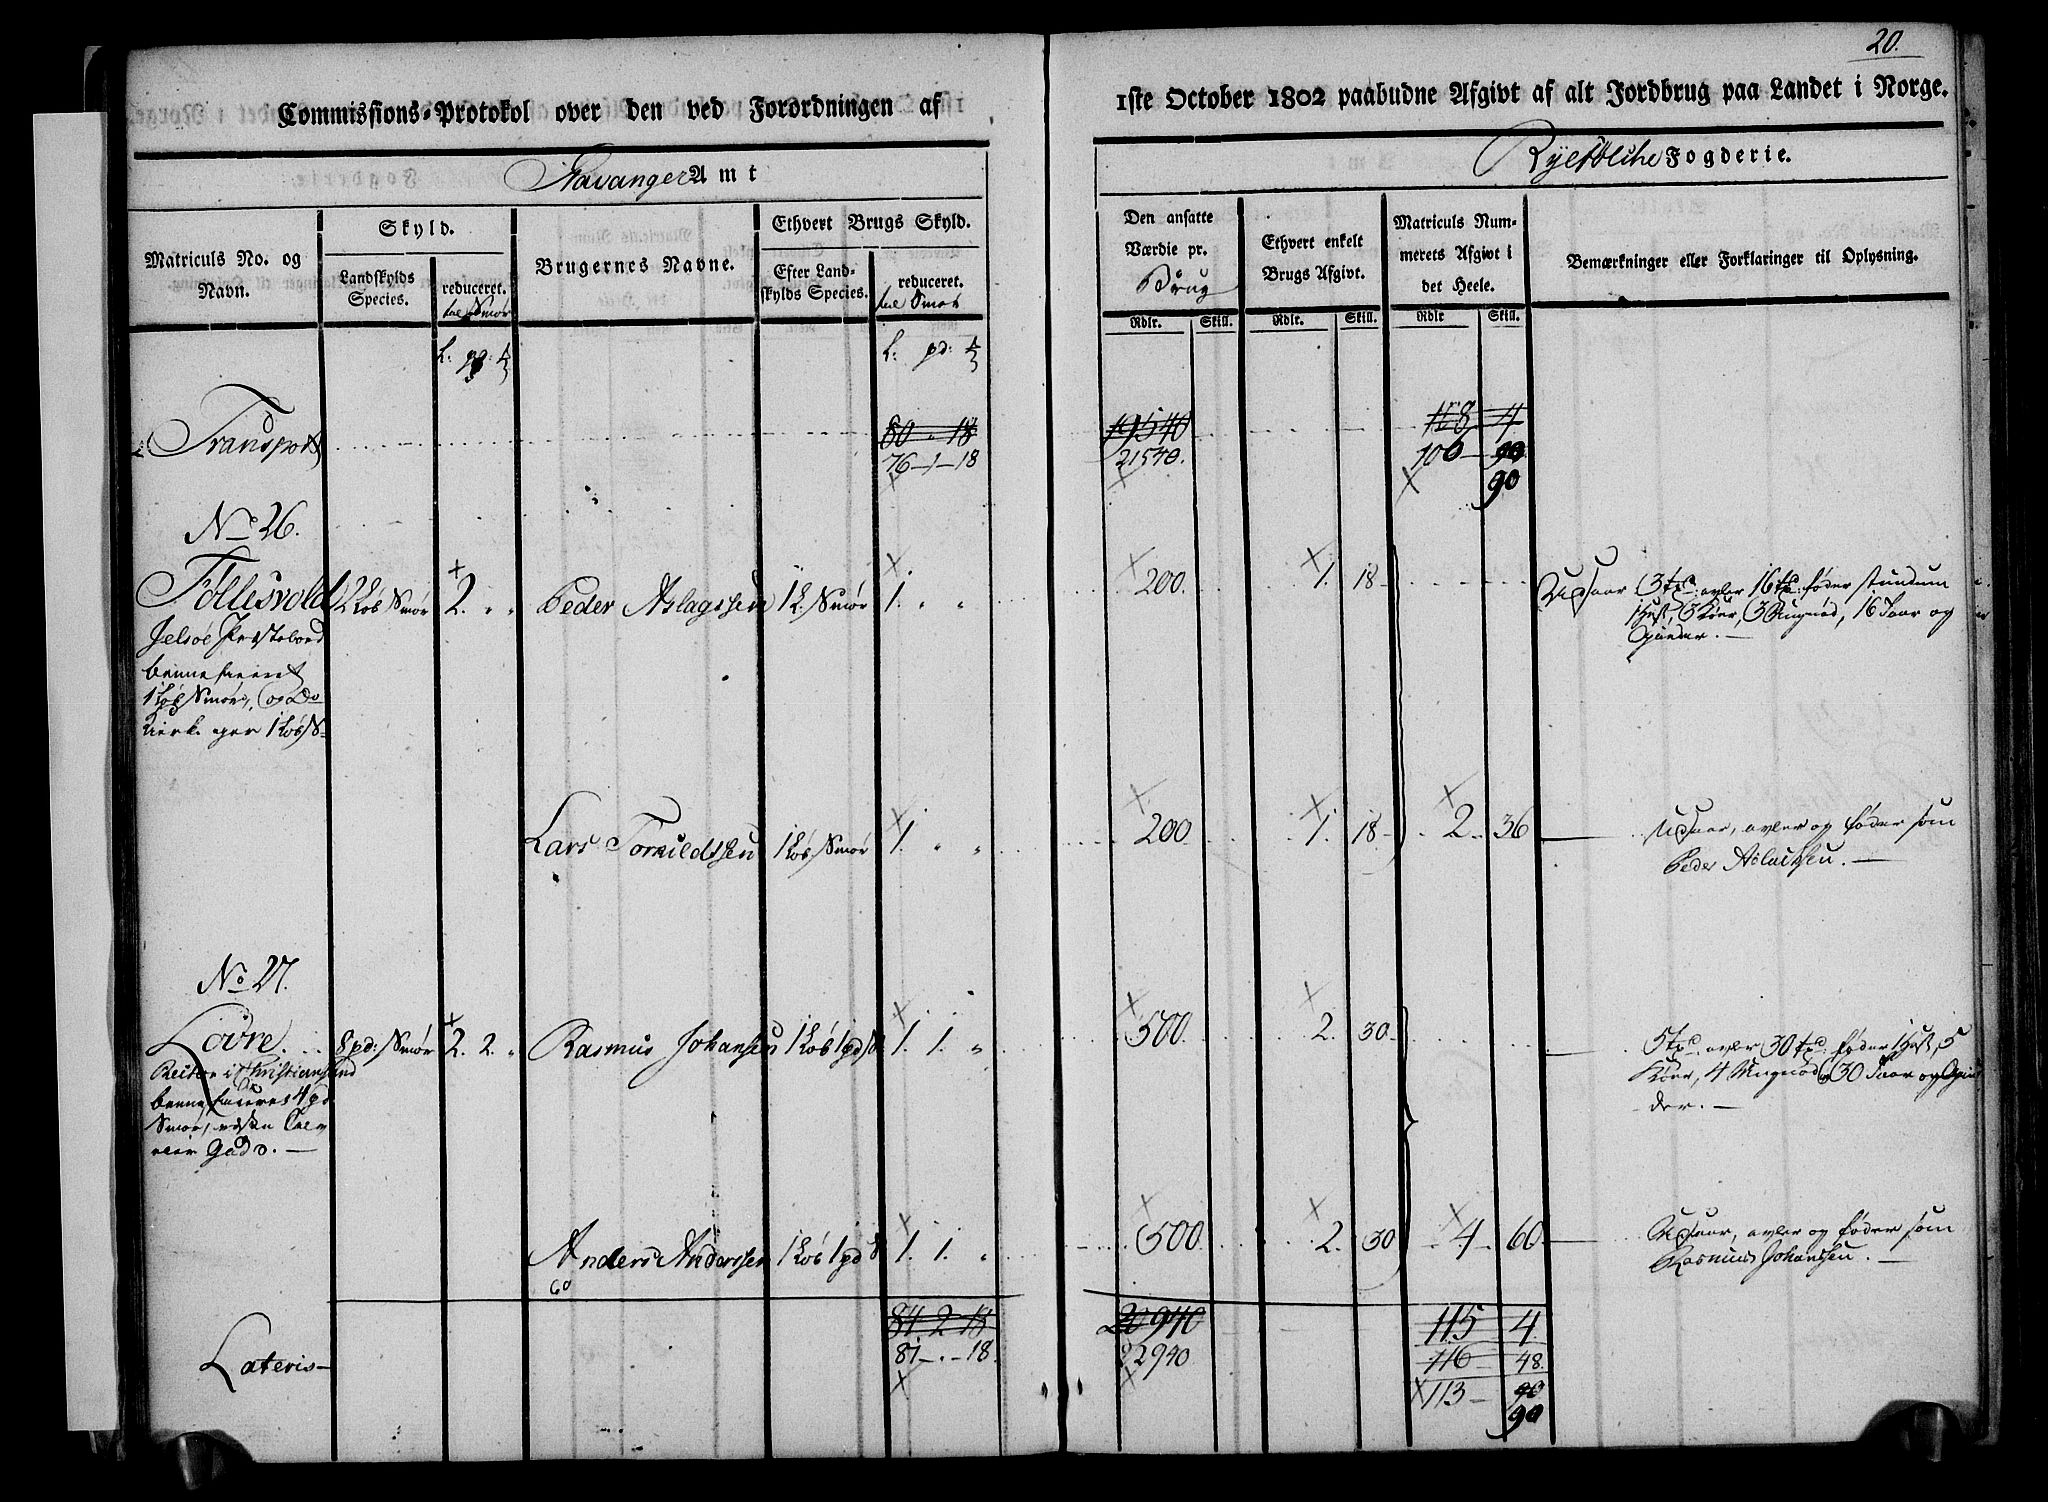 20.
Commissions-Protokol over den ved Forordningen af 1ste October 1802 paabudne Afgivt af alt Jordbrug paa Landet i Norge.
Stavanger Amt
Ryefölche Fogderie.
Matriculs No. og Navn.
Skyld.
Landskylds Species.
reduceret.
til Smør
Brugernes Navne.
Ethvert Brugs Skyld.
Efter Landskylds Species.
reduceret.
til Smør
Den ansatte Værdie pr. Brug
Ethvert enkelt Brugs Afgivt.
Matriculs Nummerets Afgivt i det Heele.
Bemærkninger eller Forklaringer til Oplysning.
Rdlr. Skill. Rdlr. Skill. Rdlr Skill.
L: pd: L: pd:
Transport 80 " 18 19540 4
76 - 1 - 18 21540. 100 - 90
90
No 26.
Föllesvold 2 Løb Smør 2. " " Peder Aslagssen 1 L. Smør 1. " " 200. 1. 18 Udsaar 3 td: avler 16 td: föder stundum
Jelsöe Præstebord 1 Hest, 3 Kiøer, 3 Ungnød, 16 Faar og
benneficeret Gieder.
1 Løb Smør, og Do
Kirke eger 1 Løb S
Lars Torkildssen 1 Løb Smør 1. " " 200 1. 18. 2. 36 Udsaar, avler og føder som
Peder Aslachsen.
No 27.
Lovre 8 pd: Smør 2. 2. " Rasmus Johansen 1 Løb 1 pd S 1. 1. " 500. 2. 30 5 td: avler 30 td: føder 1 Hest, 5
Rector i Christiansand Kiøer, 4 Ungnød, 30 Faar og Gie
benneficeret 4 pd der.
Smør,
Gads.
Anders Anderssen 1 Løb 1 pd S 1. 1. " 500 2. 30 4. 60 Udsaar, avler og føder som
60 Rasmus Johanssen.
Lateris 84 2 18 20940 115 4.
81 - " - 18. 22940 116 - 48.
113 - 90
90